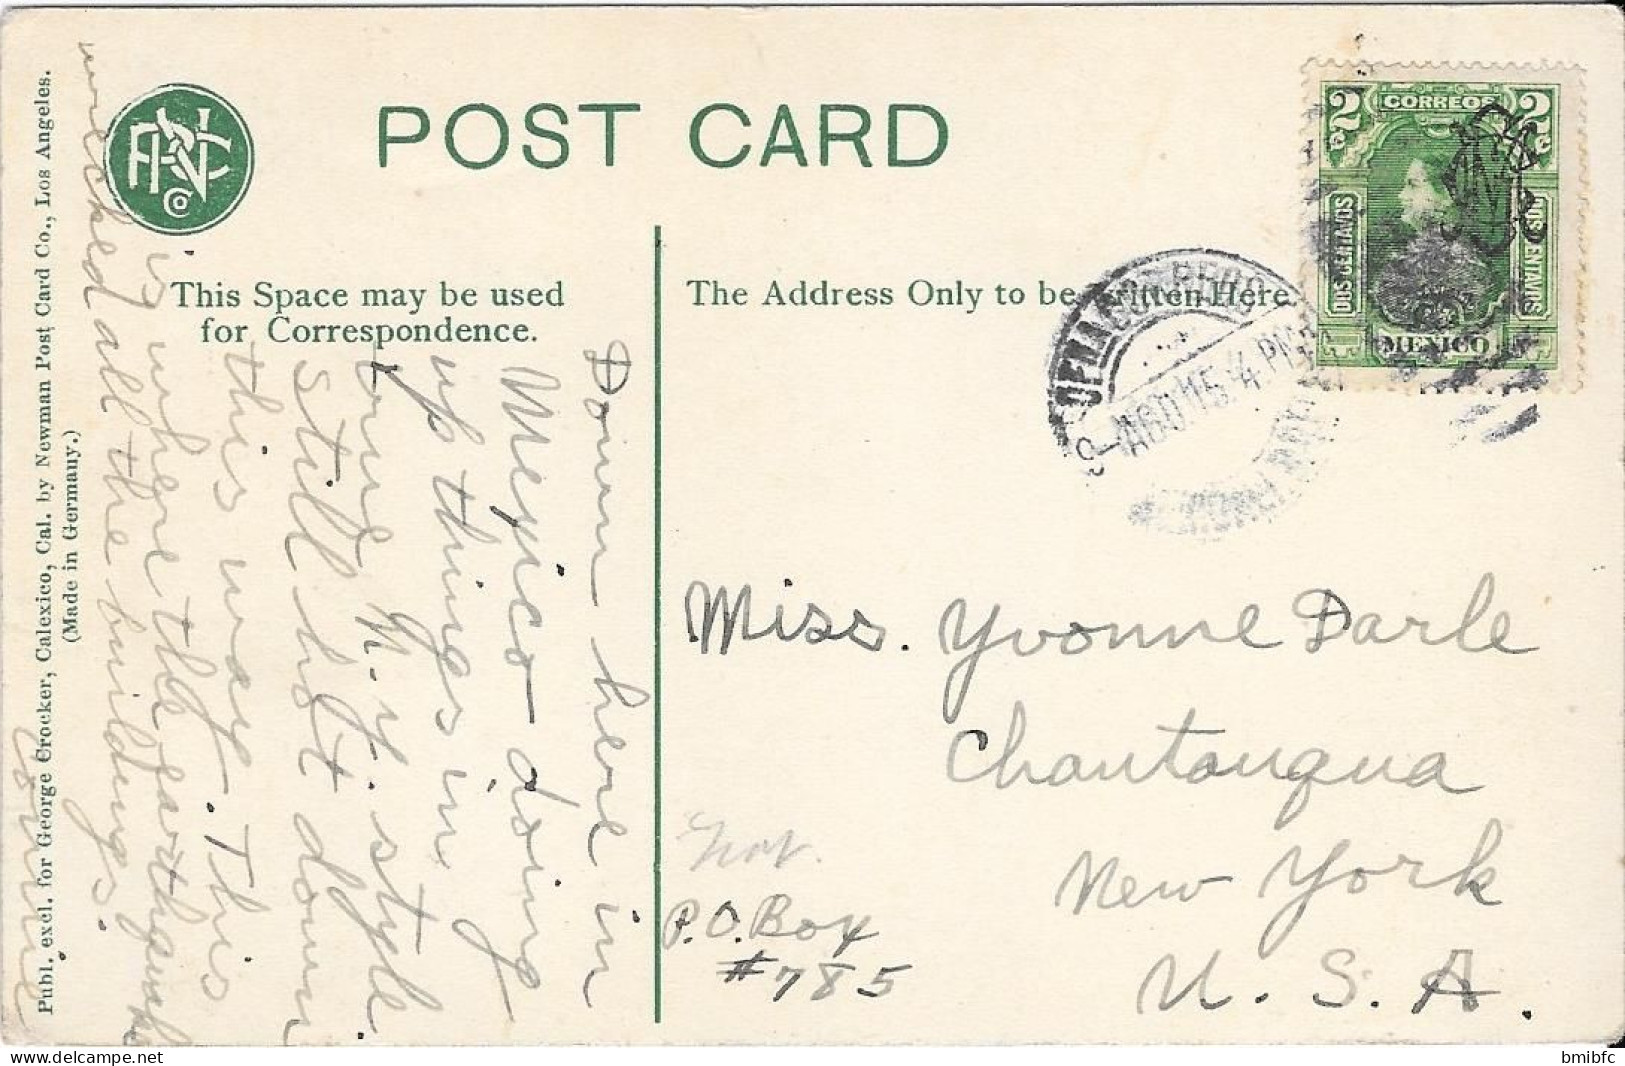 POST CARD
PNC
Co
This Space may be used
for Correspondence.
The Address Only to be written Here
Publ. excl. for George Crocker, Calexico, Cal. by Newman Post Card Co., Los Angeles.
(Made in Germany.)
2c CORREOS 2c
DOS CENTAVOS
DOS CENTAVOS
MEXICO
AGO 15 - 4 PM
Down here in
Mexico - doing
up things in
true N. Y. style.
still hot down
this way. This
is where the earthquake
wrecked all the buildings.
Miss. Yvonne Darle
Chautauqua
New York
U. S. A.
P.O. Box
#785
bmibfc